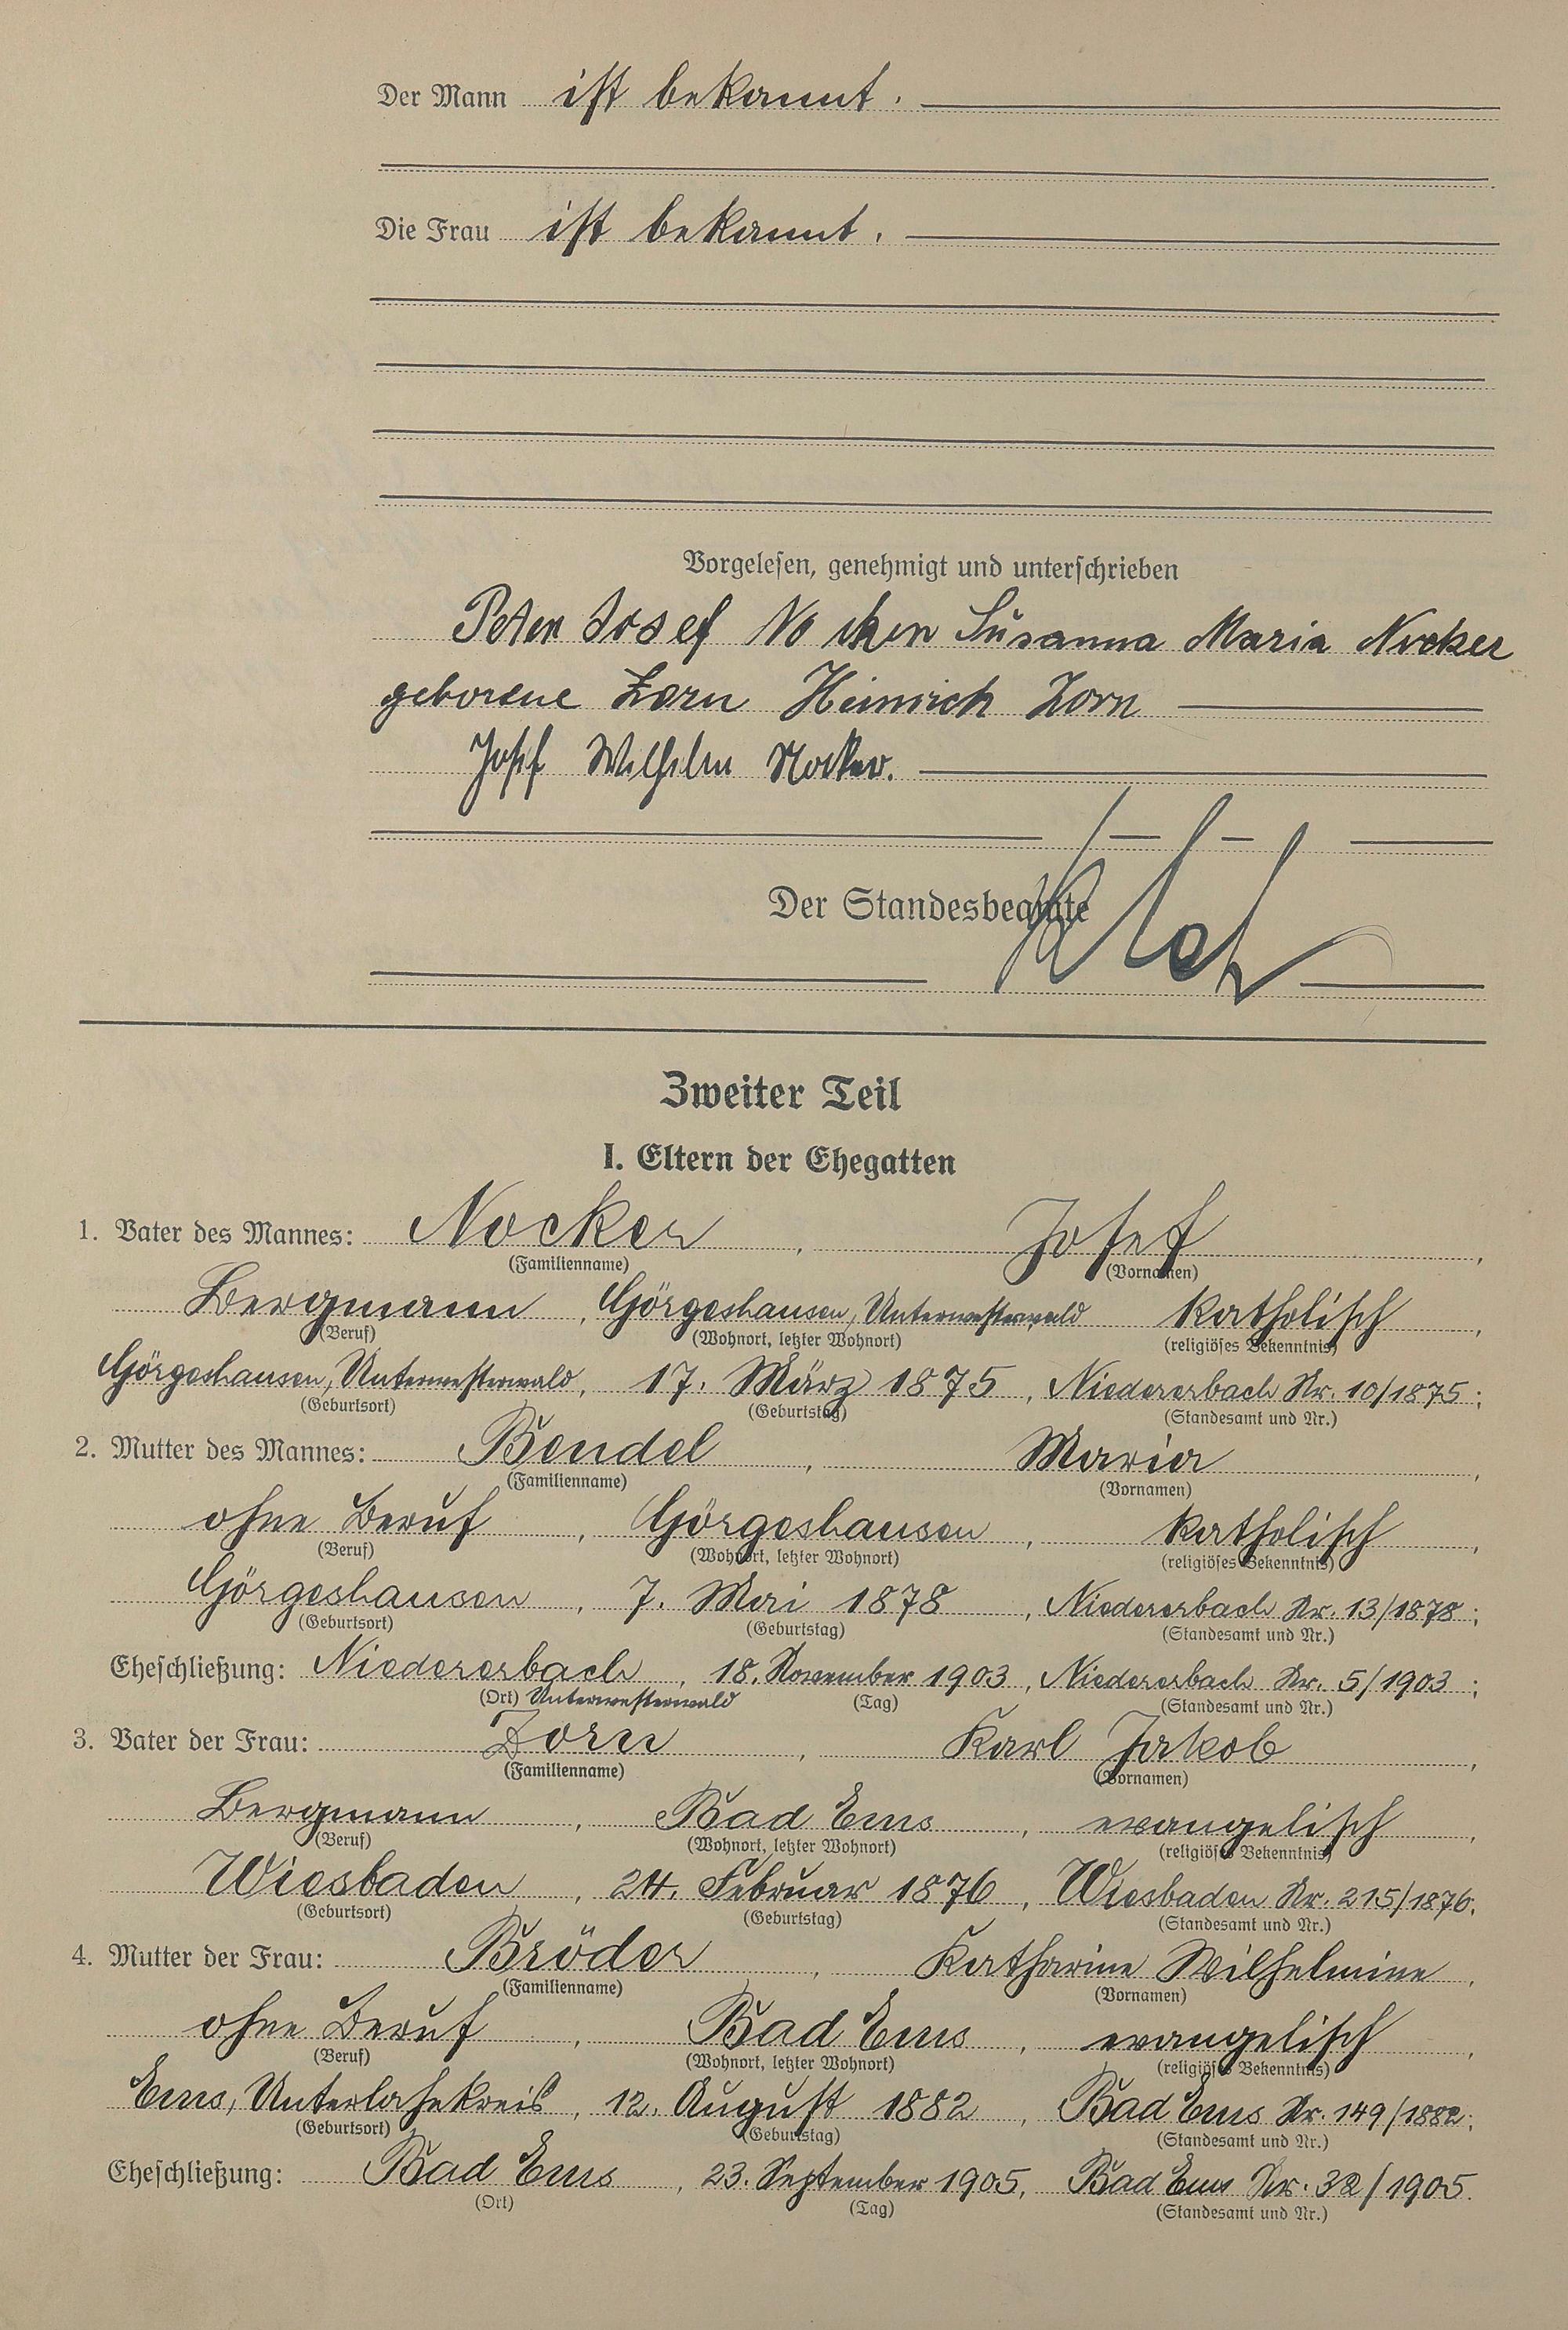 Der Mann ist bekannt.
Die Frau ist bekannt.
Vorgelesen, genehmigt und unterschrieben
Peter Josef Nocker Susanna Maria Nocker
geborene Zorn Heinrich Zorn
Josef Wilhelm Nocker.
Der Standesbeamte
Zweiter Teil
I. Eltern der Ehegatten
1. Vater des Mannes: Nocker, Josef,
(Familienname) (Vornamen)
Bergmann, Görgeshausen, Unterwesterwald katholisch,
(Beruf) (Wohnort, letzter Wohnort) (religiöses Bekenntnis)
Görgeshausen, Unterwesterwald, 17. März 1875, Niedererbach Nr. 10/1875;
(Geburtsort) (Geburtstag) (Standesamt und Nr.)
2. Mutter des Mannes: Bendel, Maria,
(Familienname) (Vornamen)
ohne Beruf, Görgeshausen, katholisch,
(Beruf) (Wohnort, letzter Wohnort) (religiöses Bekenntnis)
Görgeshausen, 7. Mai 1878, Niedererbach Nr. 13/1878;
(Geburtsort) (Geburtstag) (Standesamt und Nr.)
Eheschließung: Niedererbach, 18. November 1903, Niedererbach Nr. 5/1903;
(Ort) Unterwesterwald (Tag) (Standesamt und Nr.)
3. Vater der Frau: Zorn, Karl Jakob,
(Familienname) (Vornamen)
Bergmann, Bad Ems, evangelisch,
(Beruf) (Wohnort, letzter Wohnort) (religiöses Bekenntnis)
Wiesbaden, 24. Februar 1876, Wiesbaden Nr. 215/1876.
(Geburtsort) (Geburtstag) (Standesamt und Nr.)
4. Mutter der Frau: Bröder, Katharine Wilhelmine,
(Familienname) (Vornamen)
ohne Beruf, Bad Ems, evangelisch,
(Beruf) (Wohnort, letzter Wohnort) (religiöses Bekenntnis)
Ems, Unterlahnkreis, 12. August 1882, Bad Ems Nr. 149/1882;
(Geburtsort) (Geburtstag) (Standesamt und Nr.)
Eheschließung: Bad Ems, 23. September 1905, Bad Ems Nr. 32/1905.
(Ort) (Tag) (Standesamt und Nr.)